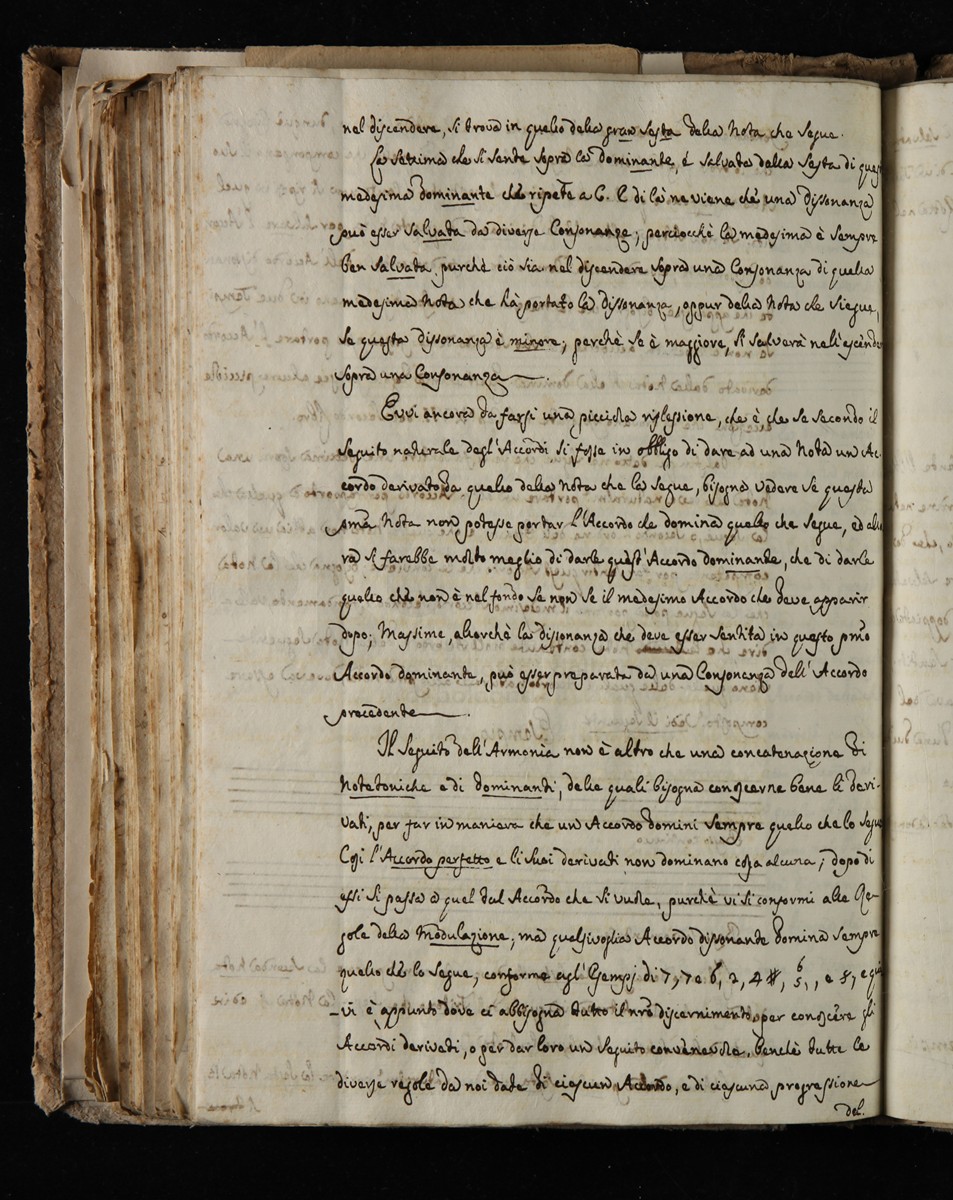 nel discendere, si trova in quello della gran Sesta della Nota che segue.
La Settima che si sente sopra la dominante, é salvata dalla Sesta di
medesima dominante che ripete a C. E di là ne viene che una dissonanza
può esser salvata da diverse Consonanze; perciocchè la medesima è sempre
ben salvata, purchè ciò sia nel discendere sopra una Consonanza di quella
medesima Nota che ha portato la dissonanza, oppur della Nota che siegue,
se questa dissonanza è minore; perchè se è maggiore, si salverà nell'
sopra una Consonanza.
Evvi ancora da farsi una picciola riflessione, che è, che se secondo il
seguito naturale degl'Accordi si fosse in obbligo di dare ad una Nota un Ac-
cordo derivato da quello della Nota che la segue, bisogna vedere se questa
pma Nota non potesse portar l'Accordo che domina quello che segue, ed allo
ra si farebbe molto meglio di darle quest'Accordo dominante, che di darle
quello che non è nel fondo se non se il medesimo Accordo che deve apparir
dopo; Massime, allorchè la dissonanza che deve esser sentita in questo pmo
Accordo dominante, può esser preparata da una Consonanza dell'Accordo
precedente.
Il seguito dell'Armonia non è altro che una concatenazione di
Note toniche e di dominanti, delle quali bisogna conoscerne bene li deri-
vati, per far in maniera che un Accordo domini sempre quello che lo segue
Così l'Accordo perfetto e li suoi derivati non dominano cosa alcuna; dopo di
essi si passa a quel tal Accordo che si vuole, purchè vi si conformi alle Re-
gole della Modulazione; ma qualsivoglia Accordo dissonante domina sempre
quello che lo segue, conforme agl'Esempj di 7, 7 e 6, 2, 4 #, 6 5, e 5, e qui
vi è appunto dove ci abbisogna tutto il nro discernimento per conoscere gli
Accordi derivati, o per dar loro un seguito convenevole, benchè tutte le
diverse regole da noi date di ciascun Accordo, e di ciascuna progressione
del.